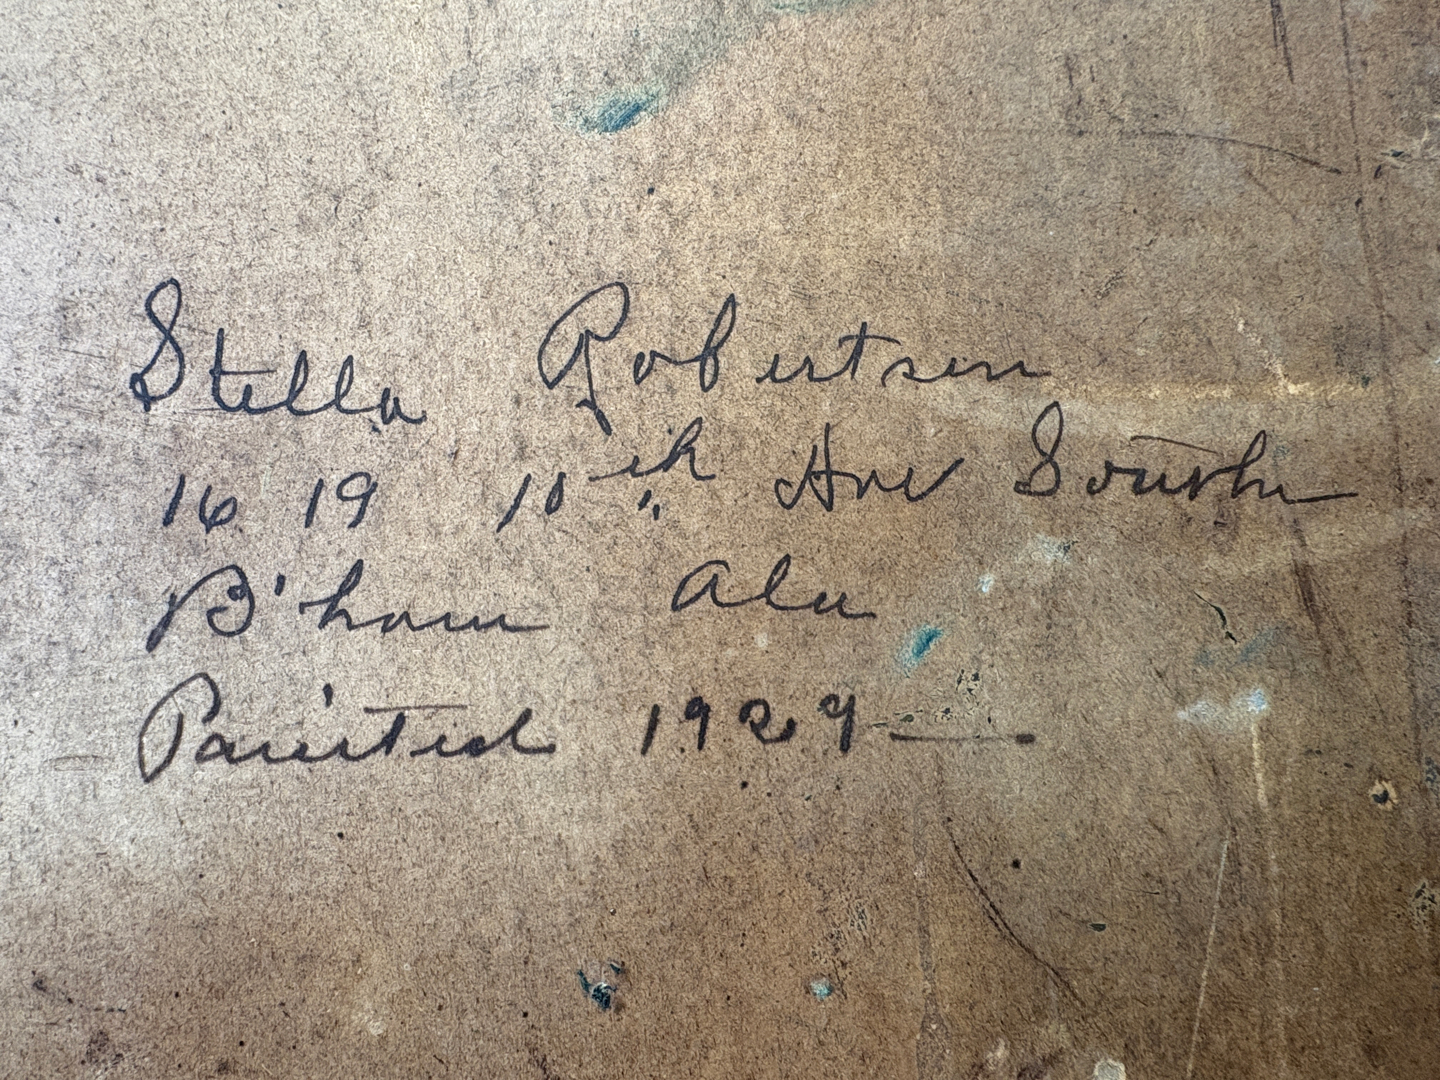 Stella Robertson
1619 10th Ave South
B'ham Ala
Painted 1929